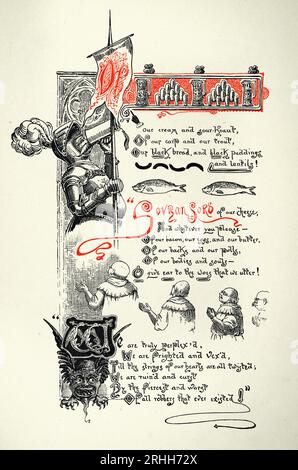 Of
Our cream and sour-kraut,
Of our carp and our trout,
Our black bread, and black puddings
and lentils!
"Sovran Lord of our cheese,
And whatever you please—
Of our bacon, our eggs, and our butter,
Of our backs and our polls,
Of our bodies and souls—
O give ear to the woes that we utter!
We are truly perplex'd,
We are frighted and vex'd,
Till the strings of our hearts are all twisted;
We are ruin'd and curst
By the fiercest and worst
Of all robbers that ever existed!"
alamy
Image ID: 2RJH72X
www.alamy.com